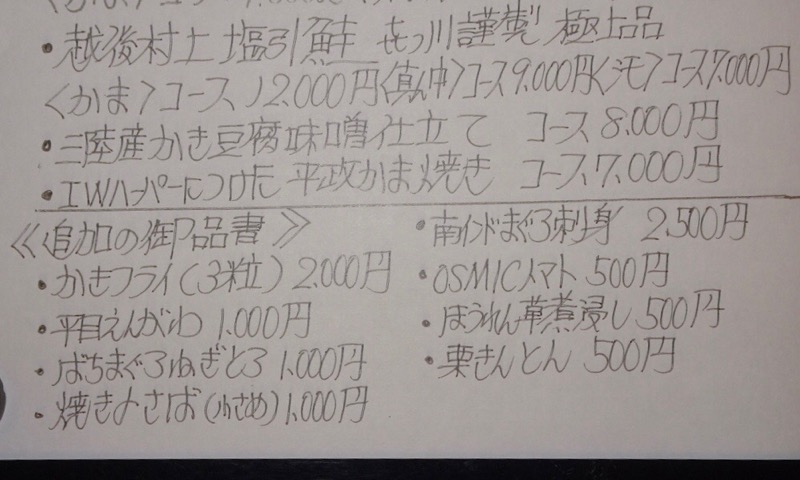 ・越後村上 塩引鮭 㐂っ川謹製 極上品
〈かま〉コース 12.000円〈真ん中〉コース9.000円〈シモ〉コース7.000円
・三陸産かき豆腐味噌仕立て コース 8.000円
・I.Wハーパーにつけた 平政かま焼き コース7.000円
≪追加の御品書≫
・かきフライ(3粒) 2.000円
・平目えんがわ 1.000円
・ばちまぐろねぎとろ 1.000円
・焼き〆さば(小さめ)1.000円
・南インドまぐろ刺身 2.500円
・OSMICトマト 500円
・ほうれん草煮浸し 500円
・栗きんとん 500円